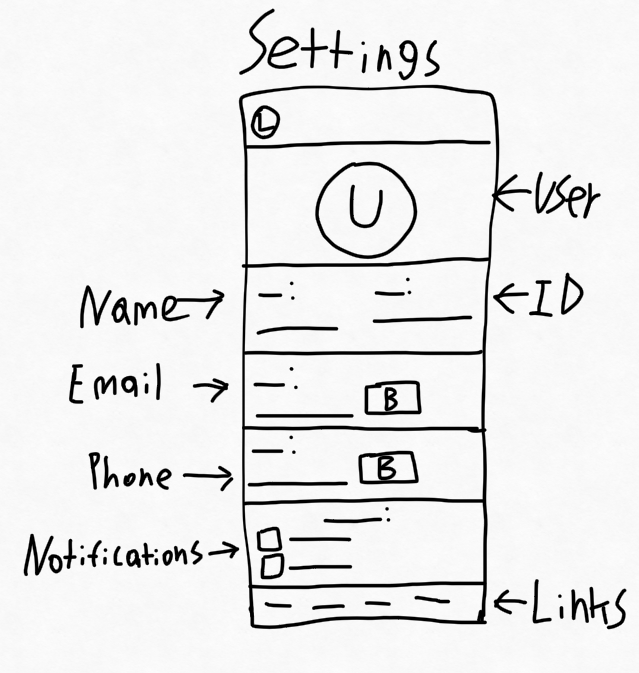 Settings
L
U
← User
Name →
← ID
Email →
B
Phone →
B
Notifications →
← Links